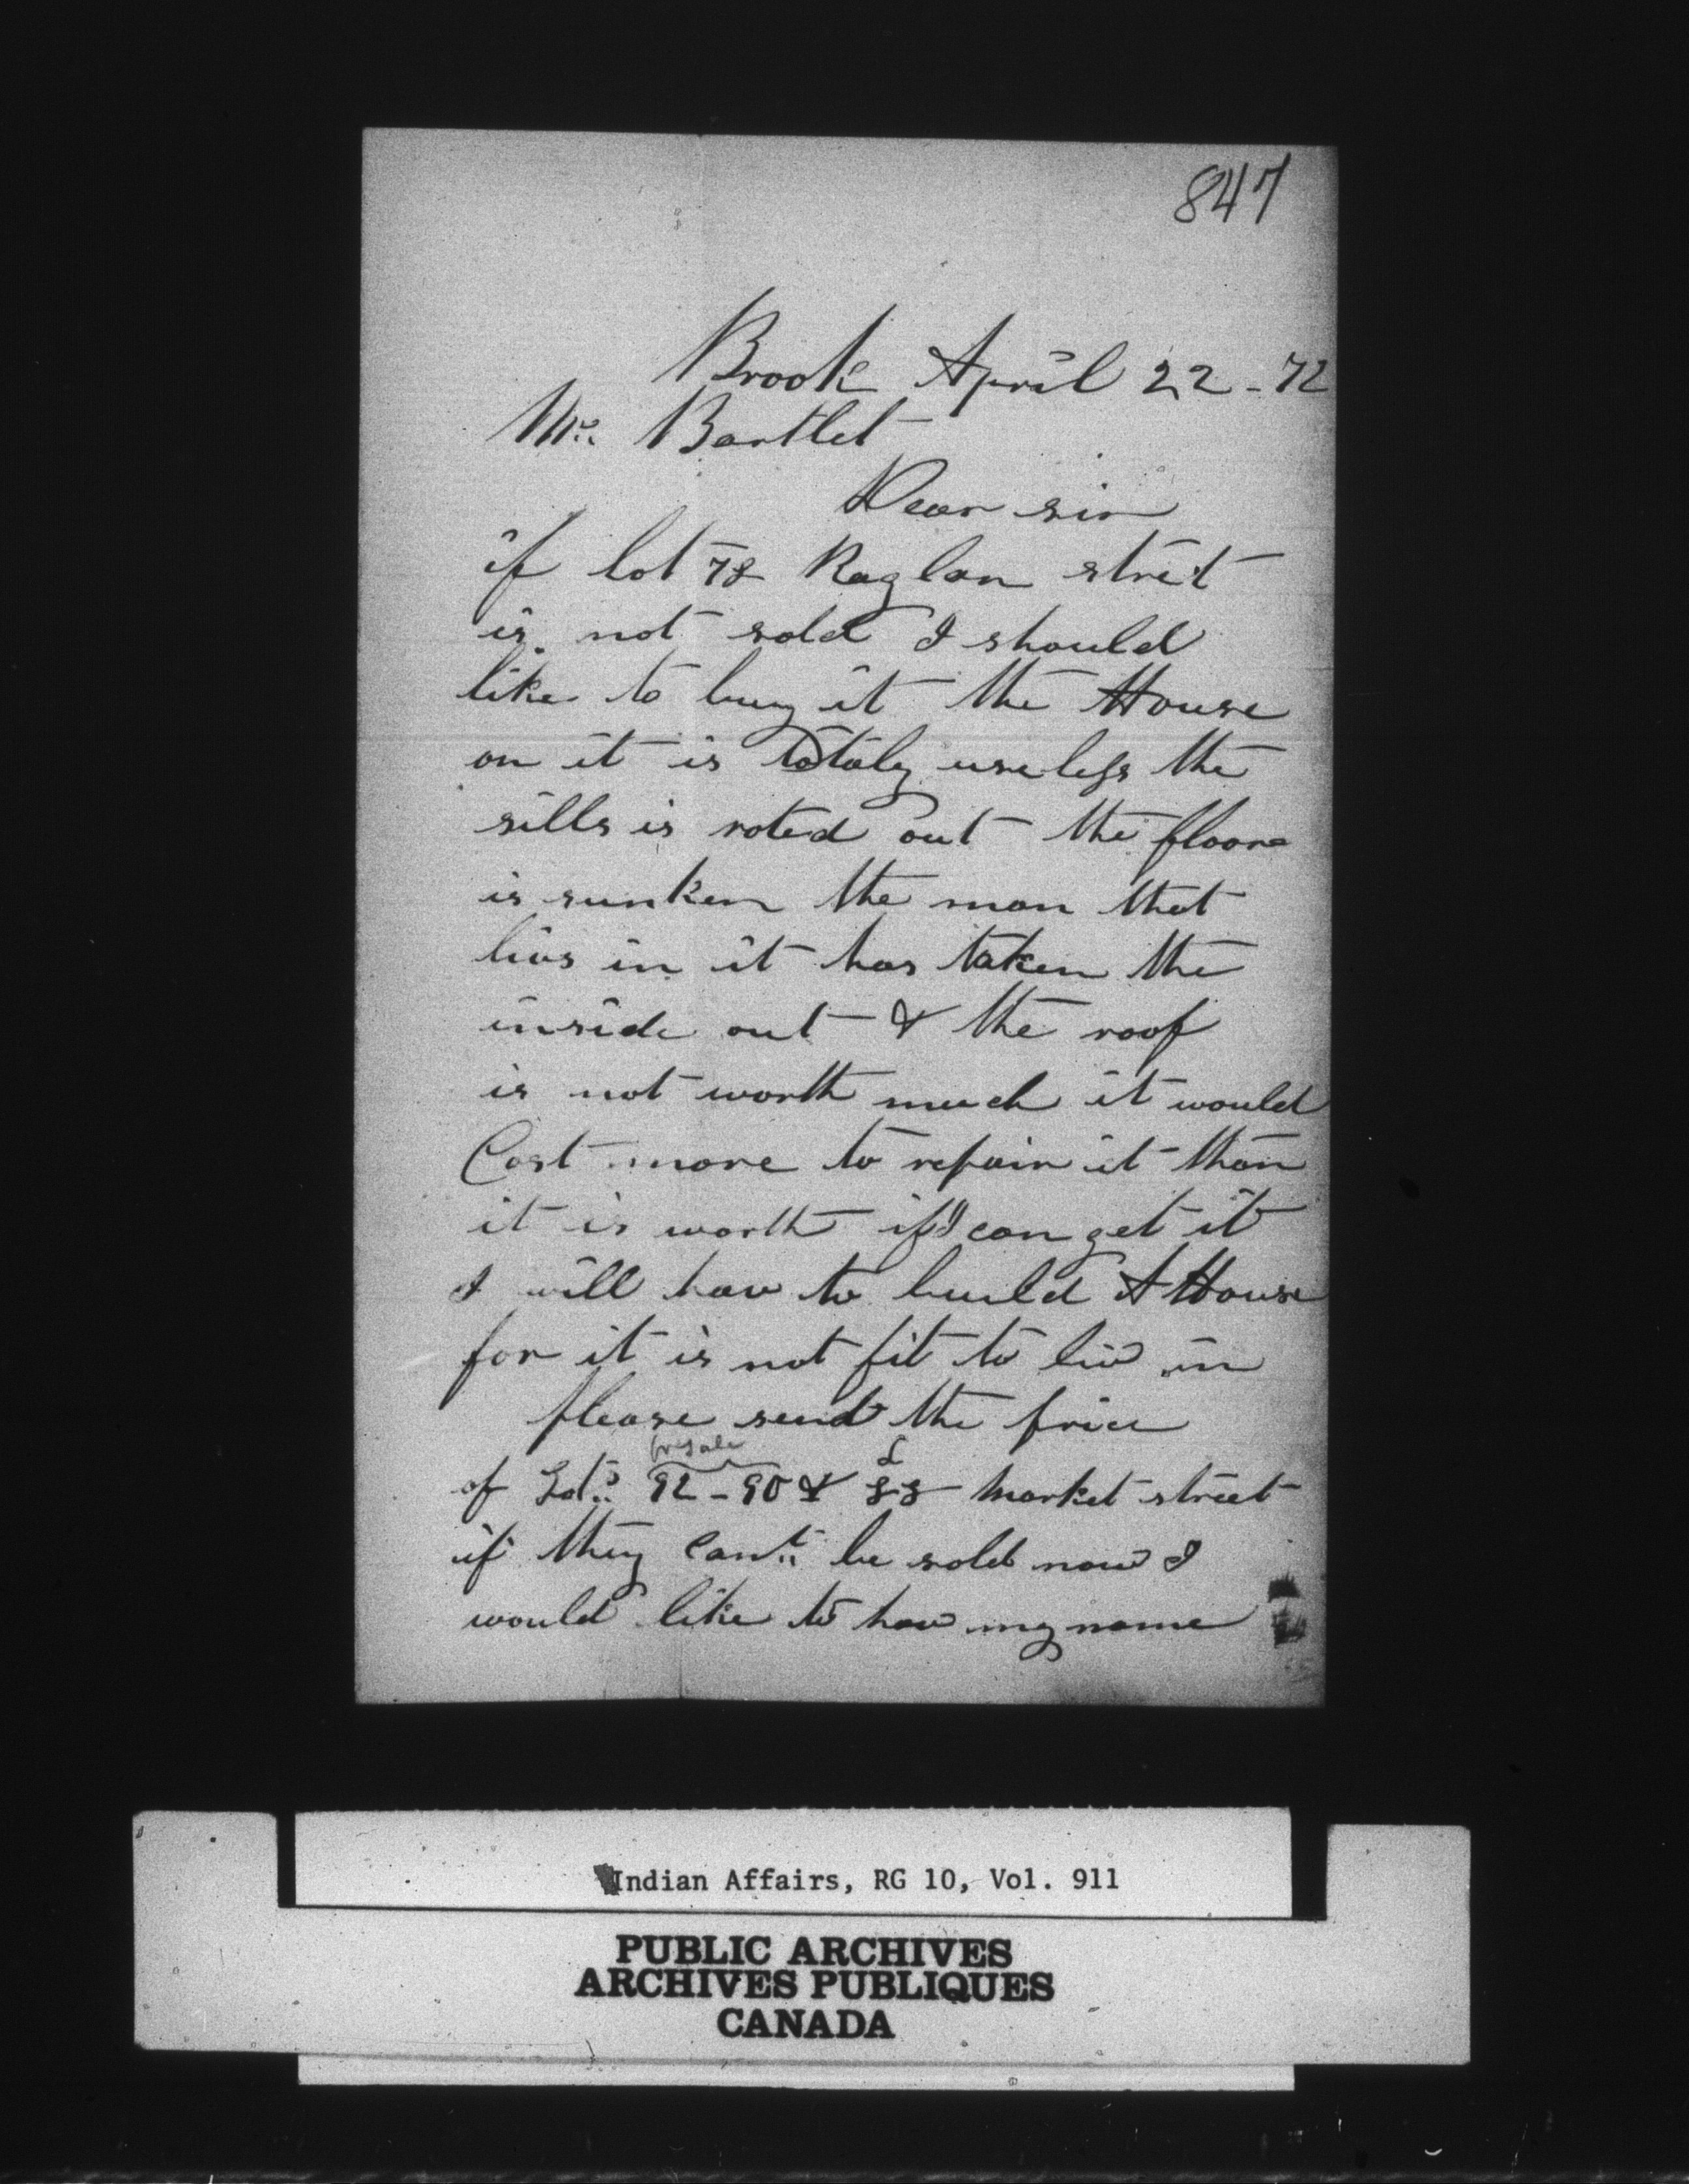 847
Brook April 22 - 72
Mr. Bartlet
Dear sir
if lot 78 Raglan street
is not sold I should
like to buy it the House
on it is totaly useless the
sills is roted out the floore
is sunken the man that
livs in it has taken the
inside out & the roof
is not worth much it would
Cost more to repair it than
it is worth if I can get it
I will hav to build A House
for it is not fit to liv in
please send the price
for sale
of Lots 92 - 90 & 88 market street
if they cant be sold now I
would like to hav my name
Indian Affairs, RG 10, Vol. 911
PUBLIC ARCHIVES
ARCHIVES PUBLIQUES
CANADA